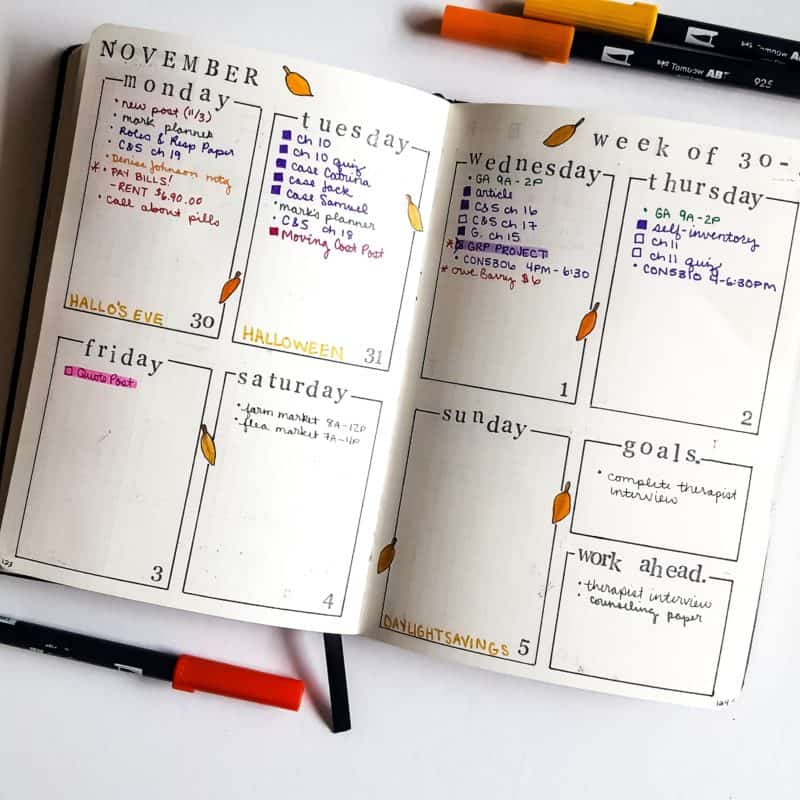 NOVEMBER
monday
• new post (11/3)
• mark planner
• Roles & Resp Paper
• C&S ch 19
• Denise Johnson mtg
* • PAY BILLS!
- RENT $690.00
• call about pills
HALLO'S EVE
30
tuesday
ch 10
ch 10 quiz
case Catrina
case Jack
case Samuel
• mark's planner
• C&S ch 18
Moving Cost Post
HALLOWEEN
31
friday
Quote Post
3
saturday
• farm market 8A-12P
• flea market 7A-1P
4
123
week of 30-
wednesday
• GA 9A-2P
article
C&S ch 16
C&S ch 17
G. ch 15
* GRP PROJECT
• CONS306 4PM-6:30
* owe Barry $6
1
thursday
• GA 9A-2P
self-inventory
ch 11
ch 11 quiz
• CONS310 4-6:30PM
2
sunday
DAYLIGHTSAVINGS
5
goals.
• complete therapist
interview
work ahead.
• therapist interview
• counseling paper
124
Tombow ABT
925
Tombow AB